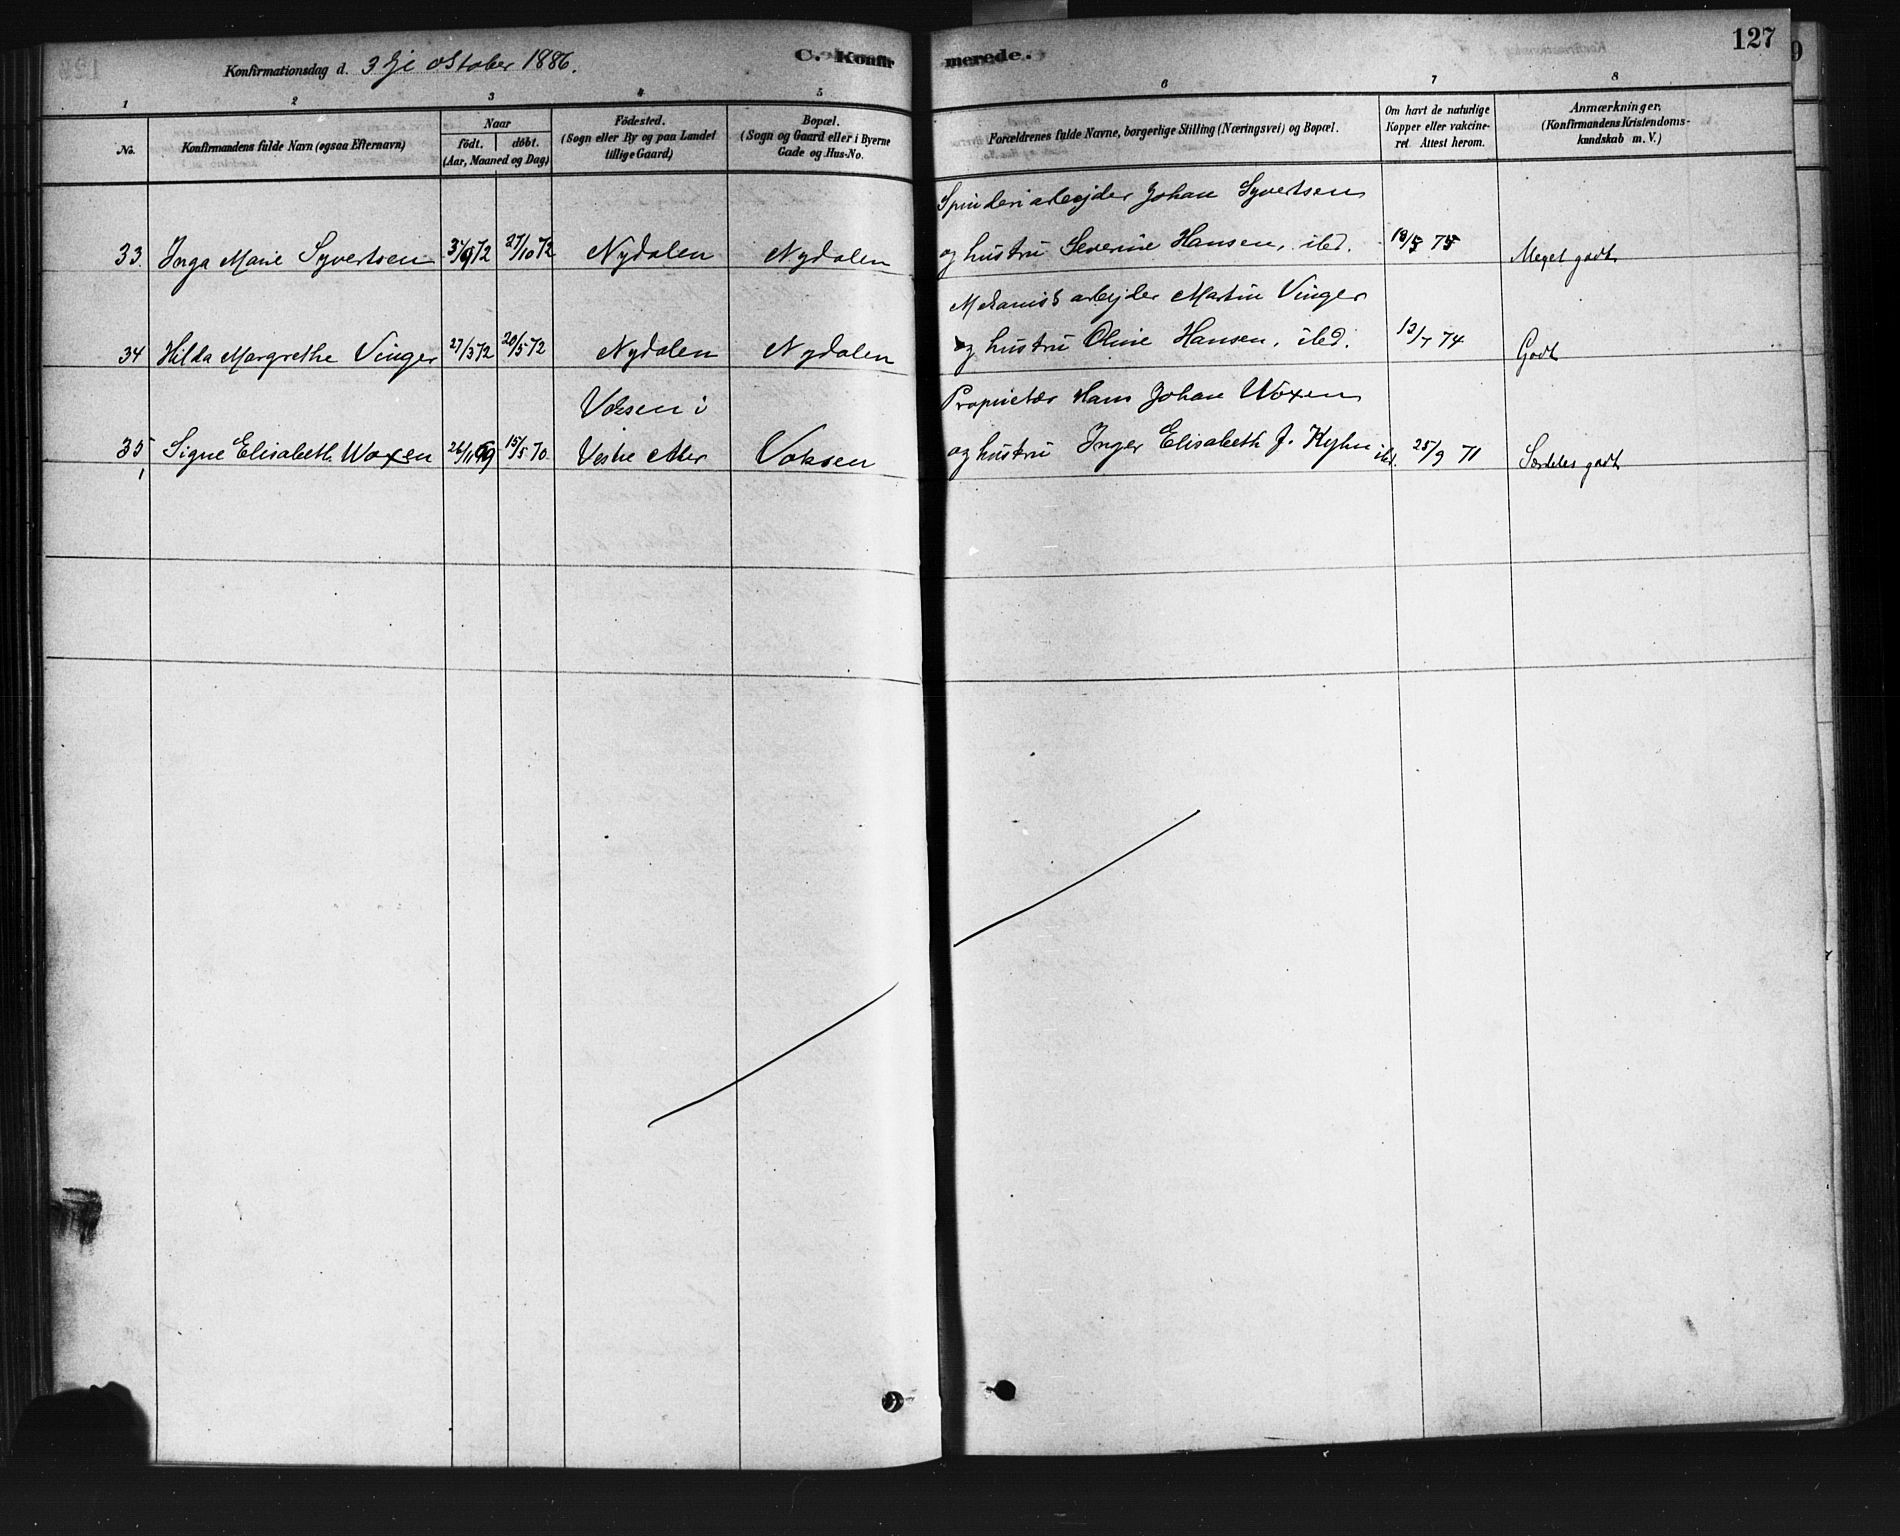 Konfirmationsdag d. 3die oktober 1886.
C. Konfirmerede.
127
1 2 3 4 5 6 7 8
No.
Konfirmandens fulde Navn (ogsaa Efternavn)
Naar
födt. döbt.
(Aar, Maaned og Dag)
Födested.
(Sogn eller By og paa Landet
tillige Gaard)
Bopæl.
(Sogn og Gaard eller i Byerne
Gade og Hus-No.
Forældrenes fulde Navne, borgerlige Stilling (Næringsvei) og Bopæl.
Om havt de naturlige
Kopper eller vakcine-
ret. Attest herom.
Anmærkninger.
(Konfirmandens Kristendoms-
kundskab m. V.)
Spinderiarbejder Johan Syvertsen
33. Inga Marie Syvertsen 27/10 72 Nydalen Nydalen og hustru Severine Hansen, ibd. Meget godt
Mekanisk arbejder Martin Vinger
34 Hilda Margrethe Vinger 27/3 72 20/5 72 Nydalen Nydalen og hustru Oline Hansen, ibd. 13/7 74 Godt
Voksen i Proprietær Hans Johan Woxen
35 Signe Elisabeth Woxen 26/11 69 15/5 70 Vestre Aker Voksen og hustru Inger Elisabeth J. Kyhn ibd. 25/9 71 Særdeles godt